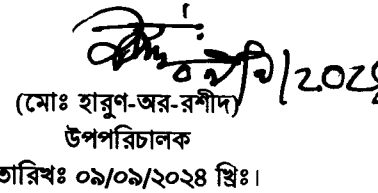 (মোঃ হারুণ-অর-রশীদ)
উপপরিচালক
তারিখঃ ০৯/০৯/২০২৪ খ্রিঃ।